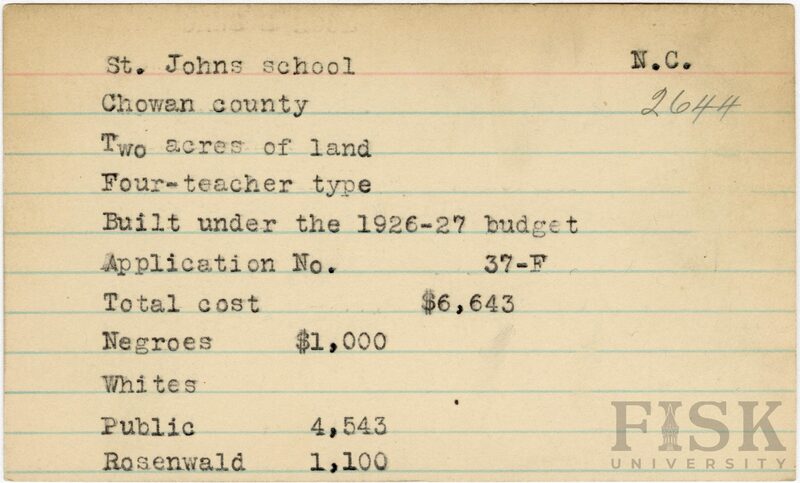 St. Johns school N.C.
Chowan county 2644
Two acres of land
Four-teacher type
Built under the 1926-27 budget
Application No. 37-F
Total cost $6,643
Negroes $1,000
Whites
Public 4,543
Rosenwald 1,100
FISK
UNIVERSITY